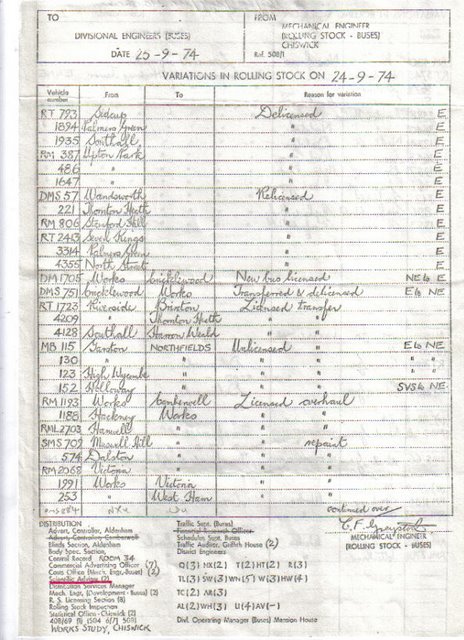 TO
FROM
DIVISIONAL ENGINEERS (BUSES)
MECHANICAL ENGINEER
(ROLLING STOCK - BUSES)
CHISWICK
DATE 25-9-74
Ref. 508/1
VARIATIONS IN ROLLING STOCK ON 24-9-74
Vehicle number From To Reason for variation
RT 793 Sidcup Delicensed E
1894 Palmers Green " E
1935 Southall " E
RM 387 Upton Park " E
486 " " E
1647 " " E
DMS 57 Wandsworth Relicensed E
221 Thornton Heath " E
RM 806 Stamford Hill " E
RT 2443 Seven Kings " E
3314 Palmers Green " E
4355 North Street " E
DM 1705 Works Cricklewood New bus licensed NE to E
DMS 751 Cricklewood Works Transferred & delicensed E to NE
RT 1723 Riverside Brixton Licensed transfer
4209 " Thornton Heath " "
4128 Southall Harrow Weald " "
MB 115 Garston NORTHFIELDS Unlicensed " E to NE
130 " " " " " "
123 High Wycombe " " " " "
152 Holloway " " " SVS to NE
RM 1193 Works Camberwell Licensed overhaul
1188 Hackney Works " "
RML 2703 Hanwell " " "
SMS 709 Muswell Hill " " repaint
574 Dalston " " "
RM 2068 Victoria " " "
1991 Works Victoria " "
253 " West Ham " "
continued over
DISTRIBUTION
Advert. Controller, Aldenham
Advert. Controller, Camberwell
Blinds Section, Aldenham
Body Spec. Section,
Control Record ROOM 34
Commercial Advertising Officer (7)
Costs Office (Mech. Engr. Buses) (2)
Scientific Adviser (2)
Distribution Services Manager
Mech. Engr. (Development - Buses) (2)
R. S. Licensing Section (8)
Rolling Stock Inspection
Statistical Office - Chiswick (2)
408/69 (1) 1504 6/71 508/1
WORKS STUDY, CHISWICK
Traffic Supt. (Buses)
Schedules Supt. Buses
Traffic Auditor, Griffith House (2)
District Engineers
Q(3) NX(2) T(2) HT(2) R(3)
TL(3) SW(3) WN(5) W(3) HW(4)
TC(2) AR(3)
AL(2) WH(3) U(4) AV(-)
Divl. Operating Manager (Buses) Mansion House
MECHANICAL ENGINEER
(ROLLING STOCK - BUSES)